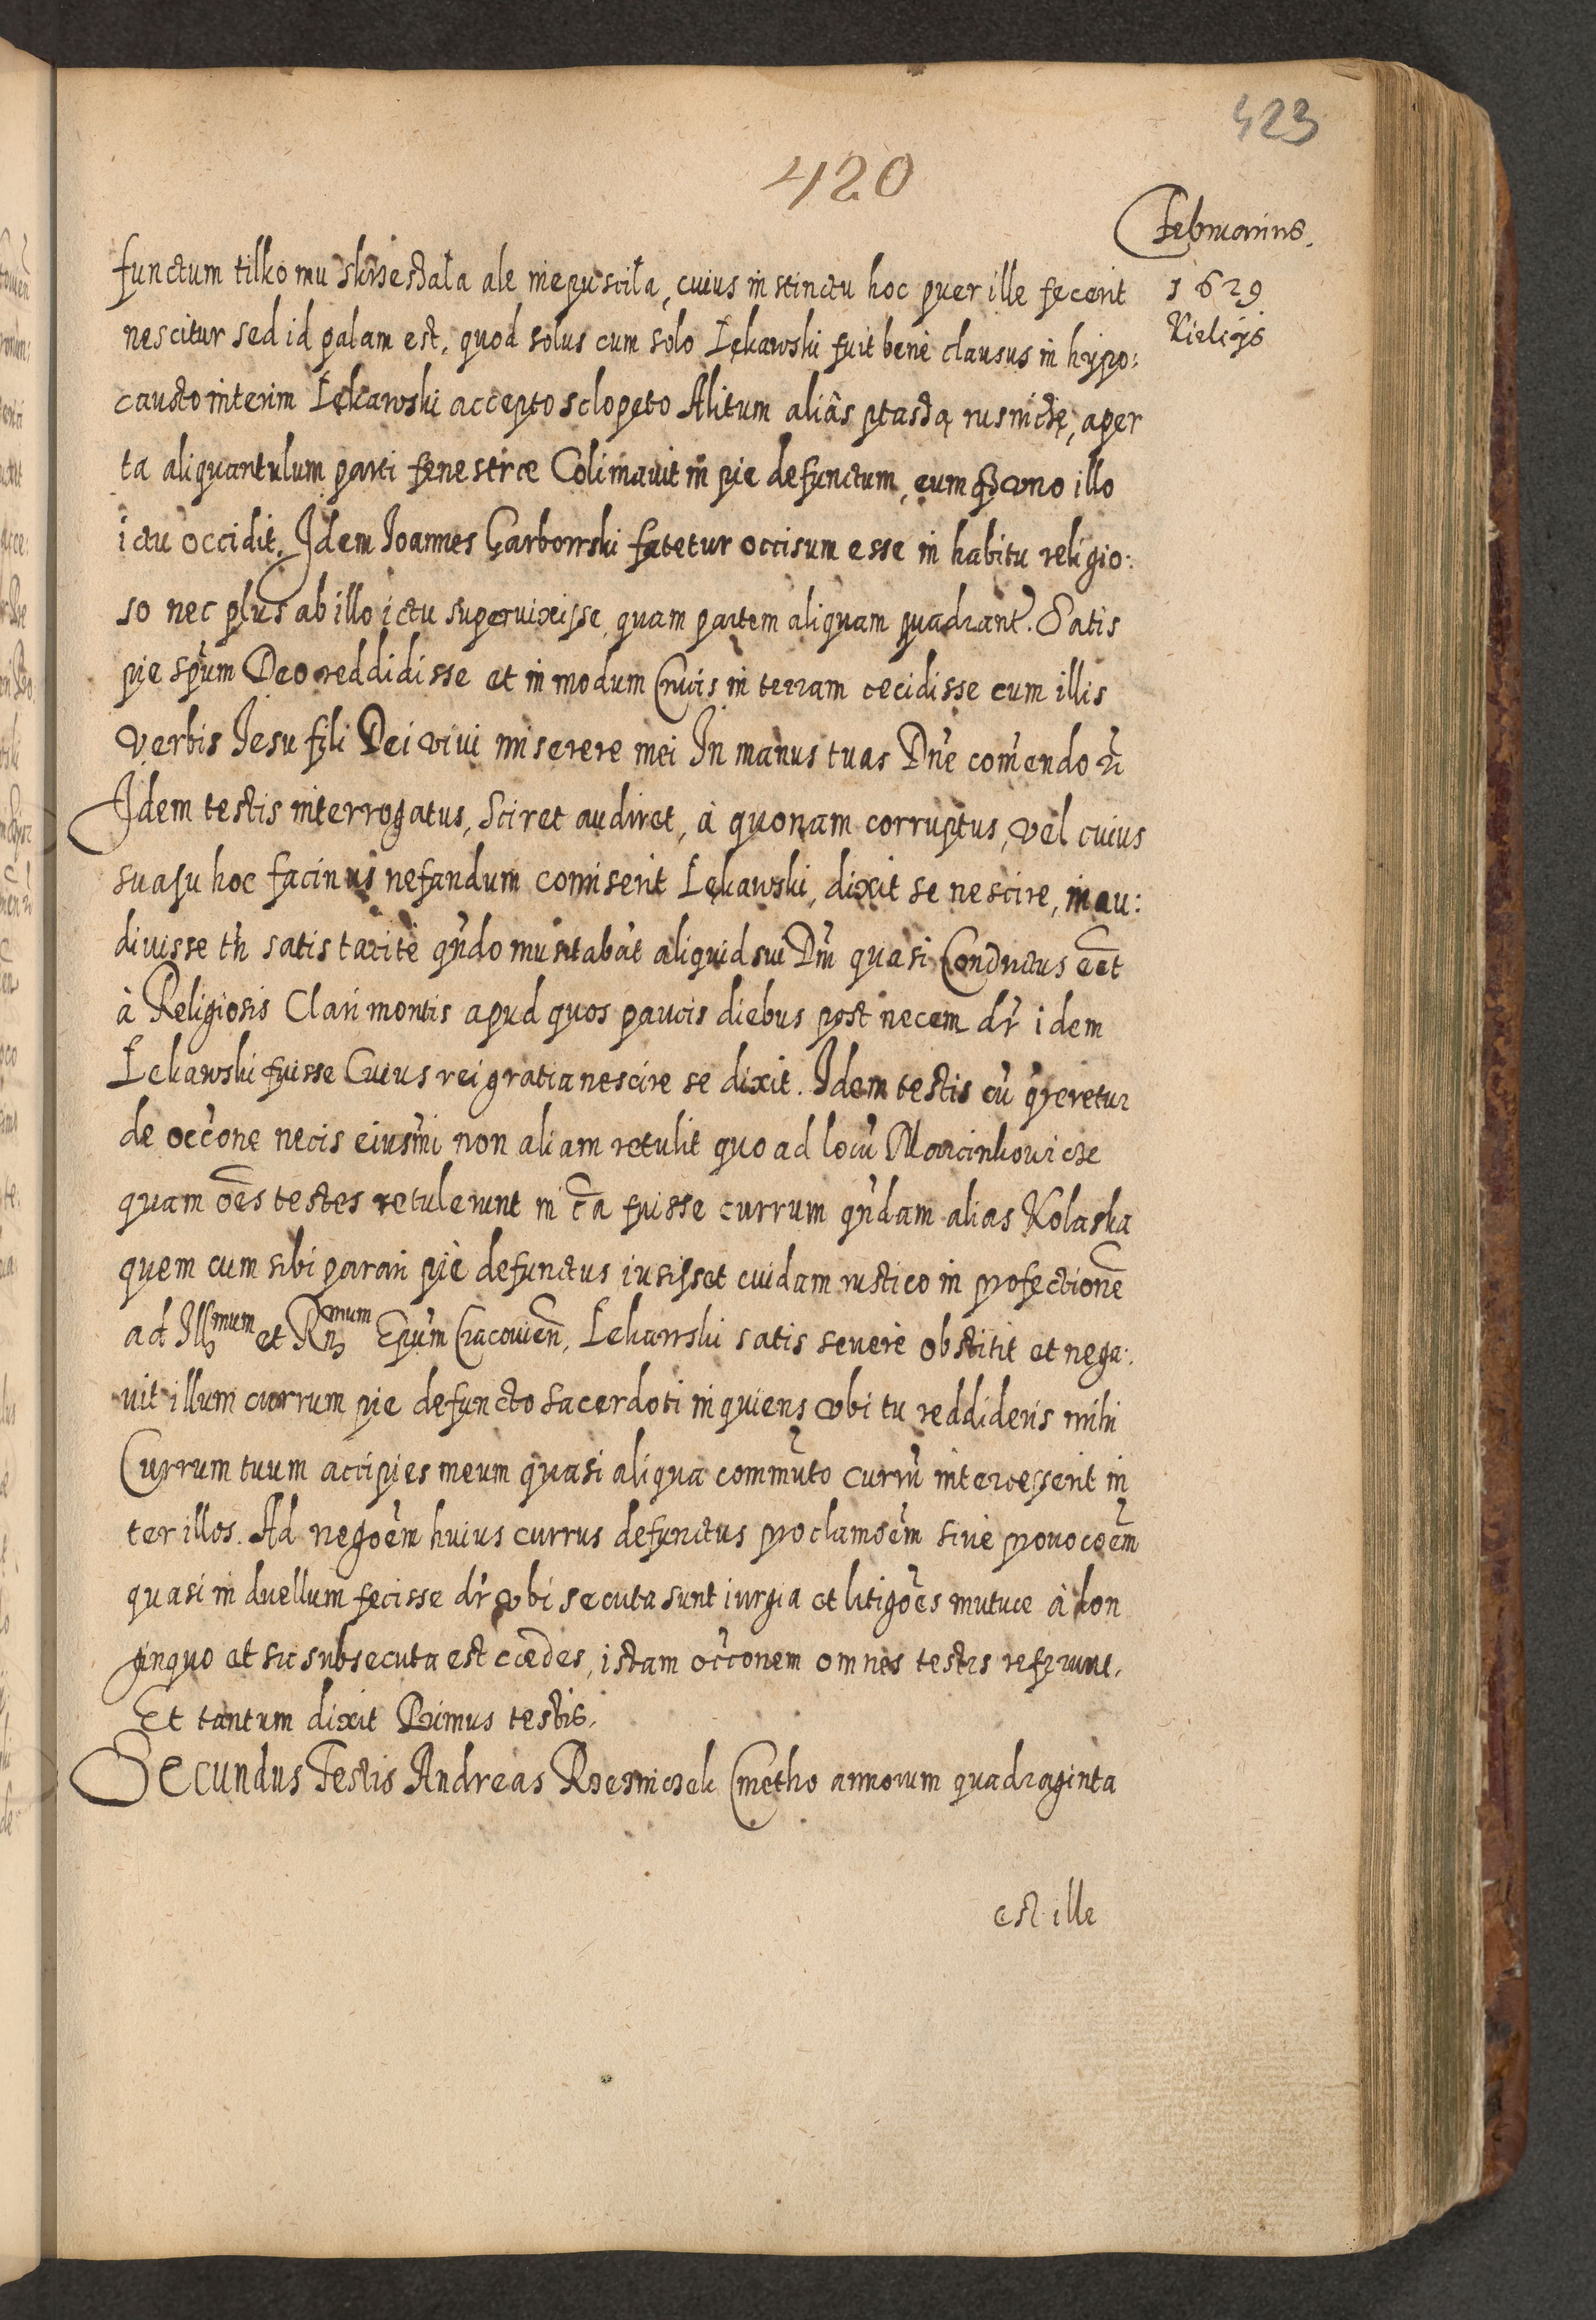 423
420
Februarius.
1629
Kielcijs
functum tilko mu skrzesdała ale niepuscila, cuius instinctu hoc puer ille fecerit
nescitur sed id palam est, quod solus cum solo Lękawski fuit bene clausus in hypo:
causto interim Lękawski accepto sclopeto Alitum aliâs ptasdą rusnicdę, aper
ta aliquantulum parti fenestræ Colimauit in pie defunctum, eumqꝫ vno illo
ictu occidit. Idem Ioannes Garbowski fatetur occisum esse in habitu religio:
so nec plus ab illo ictu superuixisse, quam partem aliquam quadrant. Satis
pie spũm Deo reddidisse et in modum Crucis in terram cecidisse cum illis
verbis Iesu fili Dei viui miserere mei In manus tuas Dñe com̃endo ꝛc̃
Idem testis interrogatus, Sciret audiret, à quonam corruptus, vel cuius
suasu hoc facinus nefandum comiserit Lękawski, dixit se nescire, inau:
diuisse tñ satis tacitè qñdo musitabat aliquid sui Dñi quasi Conductus eēt
à Religiosis Clari montis apud quos paucis diebus post necem dr̃ idem
Lekawski fuisse Cuius rei gratia nescire se dixit. Idem testis cũ q̃reretur
de occõne necis eiusm̃i non aliam retulit quo ad locũ Marcinkowicze
quam oẽs testes retulerunt in c̃a fuisse currum qñdam alias Kolaska
quem cum sibi parari piè defunctus iusisset cuidam rustico in profectionẽ
ad Illmum et Rñmum Epũm Cracouieñ, Lekawski satis seuerè obstitit et nega:
uit illum currum pie defuncto sacerdoti inquiens vbi tu reddideris mihi
Currum tuum accipies meum quasi aliqua commũto currũ intercesserit in
ter illos. Ad negoẽm huius currus defunctus proclamoẽm siue prouocoẽm
quasi in duellum fecisse dr̃ vbi secuta sunt iurgia et litigoẽs mutuæ à lon
ginquo et sic subsecuta est cædes, istam occ̃onem omnes testes referunt.
Et tantum dixit Primus testis.
Secundus Testis Andreas Rzesniczek Cmetho annorum quadraginta
est ille